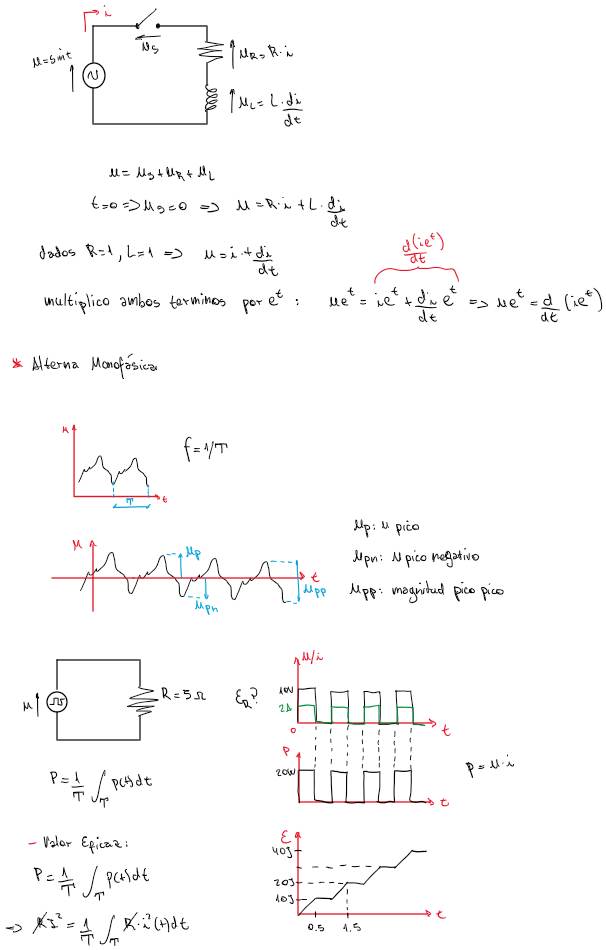 i
u=sint
us
uR=R·i
uL=L·di/dt
u=us+uR+uL
t=0=>us=0 => u=R·i+L·di/dt
dados R=1, L=1 => u=i+di/dt
d(ie^t)/dt
multiplico ambos terminos por e^t: ue^t=ie^t+di/dt e^t => ue^t=d/dt(ie^t)
* Alterna Monofásica
u
f=1/T
T
t
u
up
t
upp
upn
up: u pico
upn: u pico negativo
upp: magnitud pico pico
u
R=5Ω
ER?
u/i
10V
2A
0
t
P
20W
t
p=u·i
P=1/T ∫T p(t)dt
- Valor Eficaz:
P=1/T ∫T p(t)dt
=> RI²=1/T ∫T R·i²(t)dt
E
40J
20J
10J
0.5
1.5
t